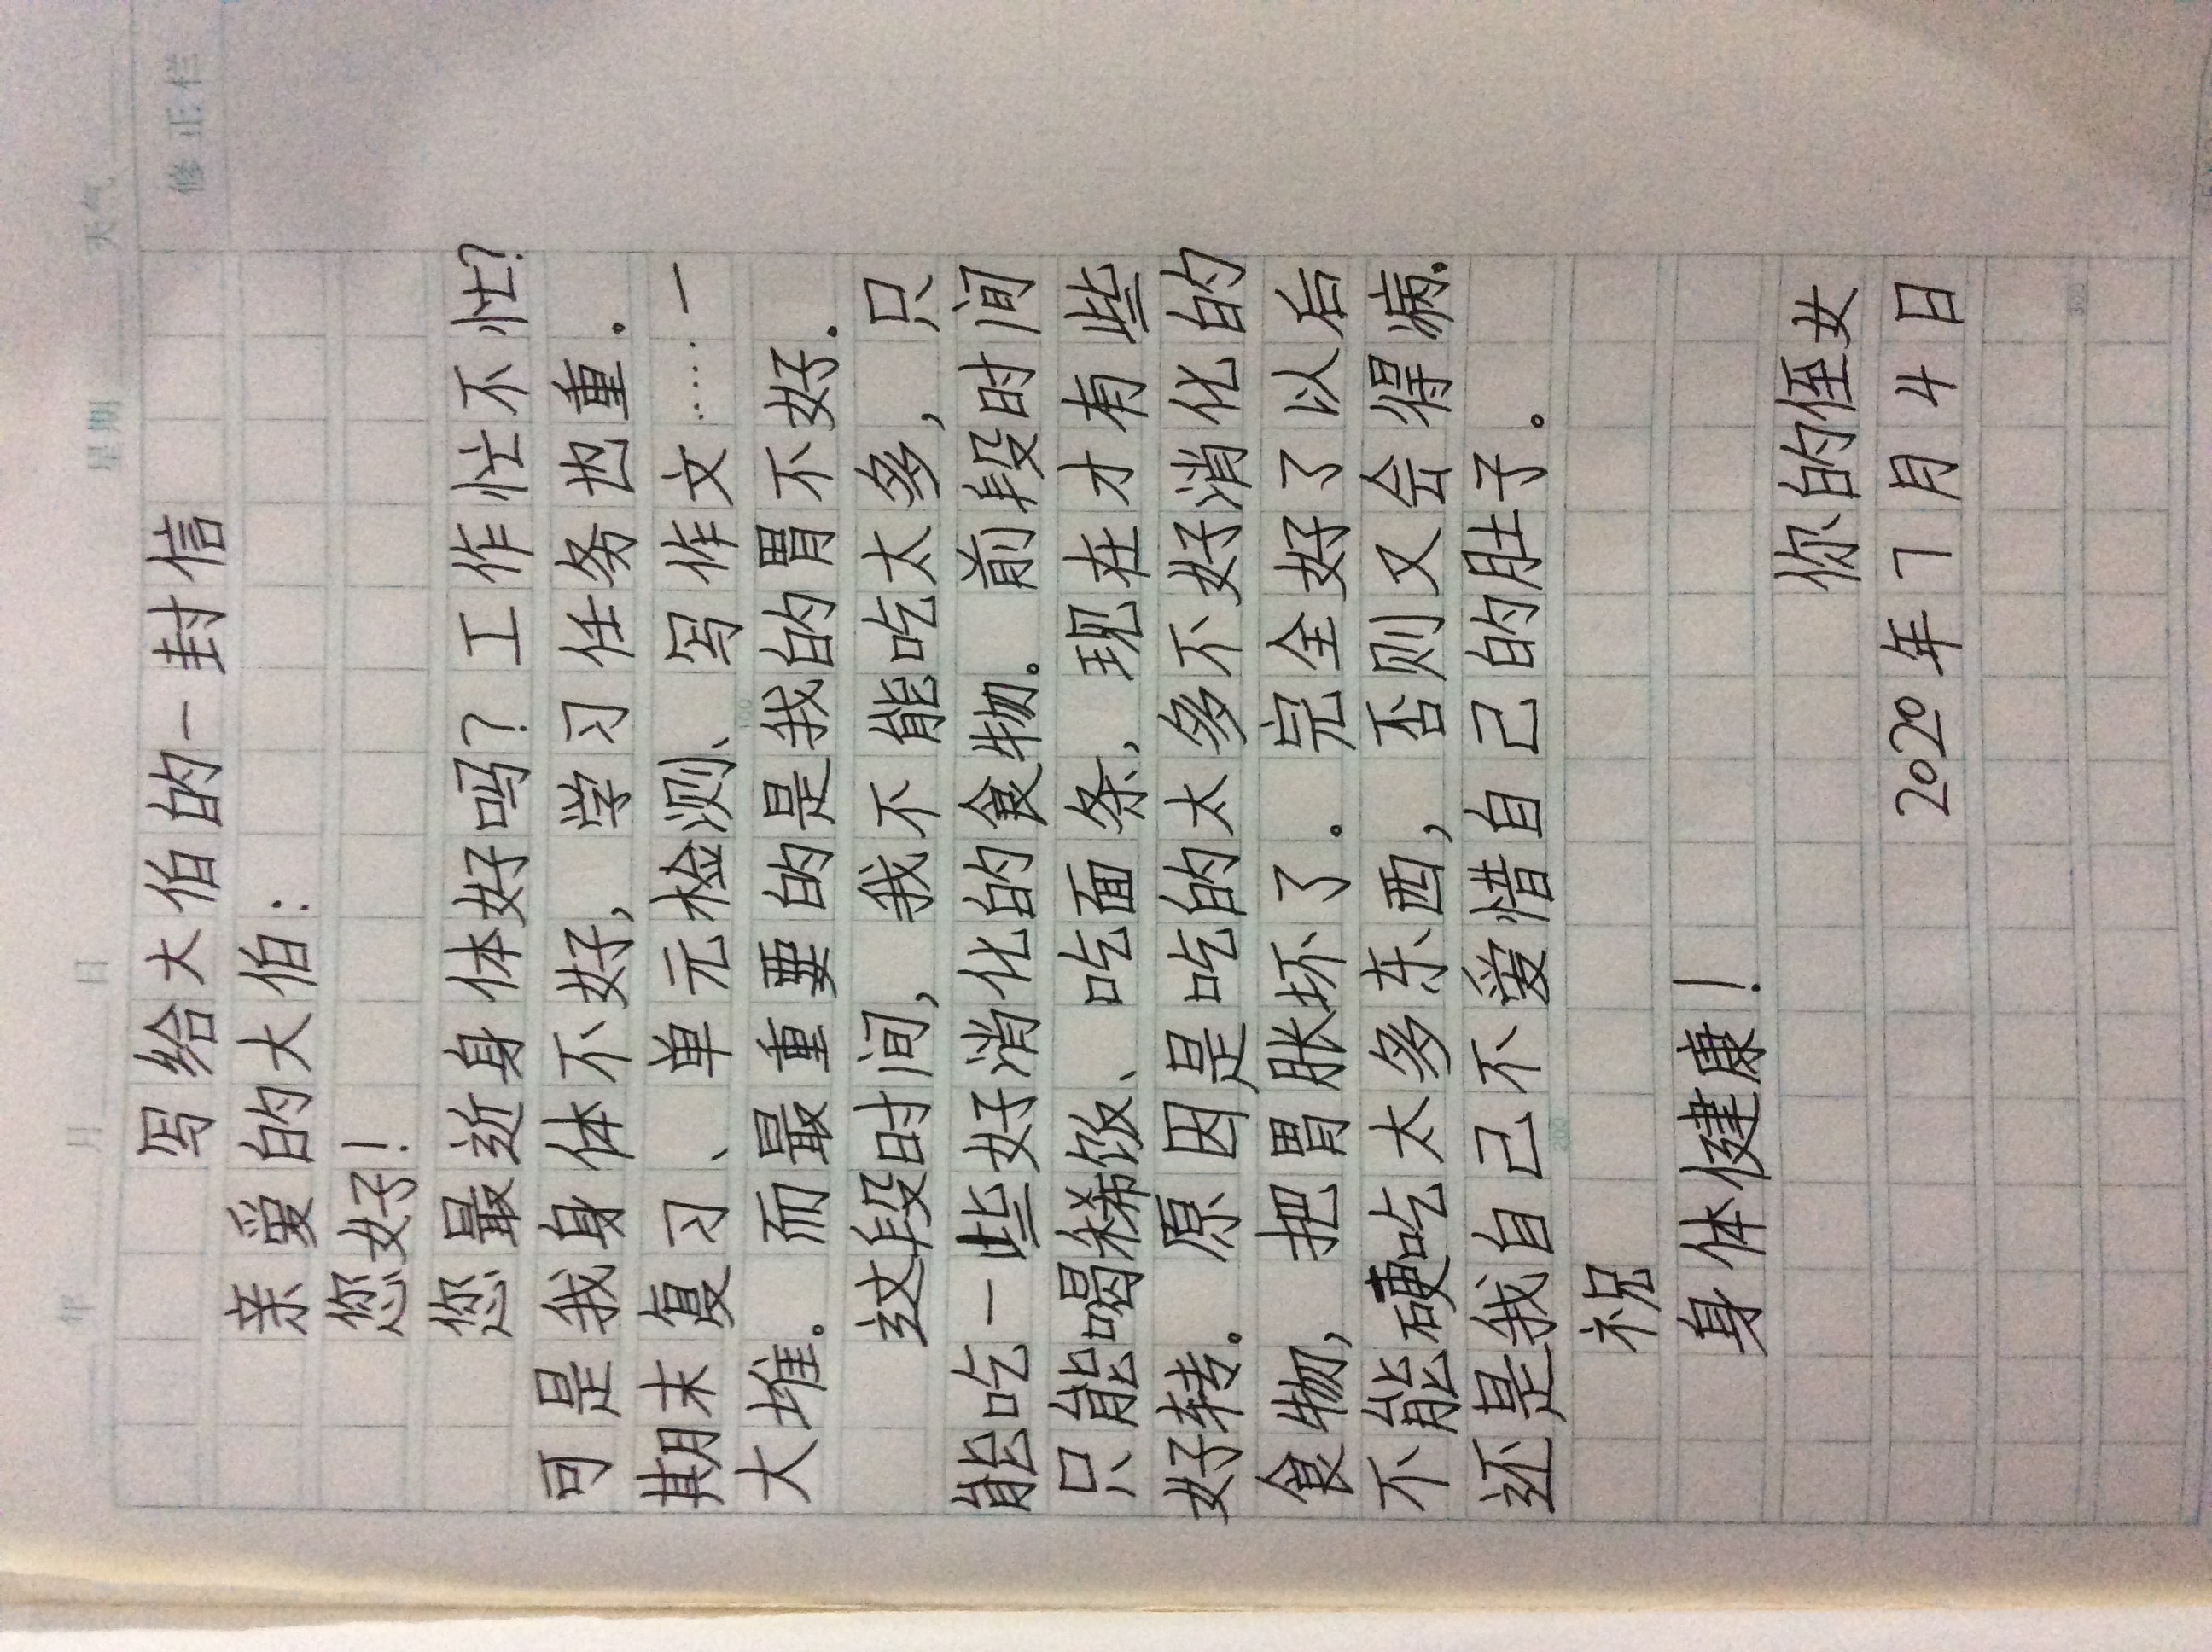 年 月 日 星期 天气
修正栏
写给大伯的一封信
亲爱的大伯：
您好！
您最近身体好吗？工作忙不忙？
可是我身体不好，学习任务也重。
期末复习、单元检测、写作文……一
大堆。而最重要的是我的胃不好。
这段时间，我不能吃太多，只
能吃一些好消化的食物。前段时间
只能喝稀饭、吃面条，现在才有些
好转。原因是吃的太多不好消化的
食物，把胃胀坏了。完全好了以后
不能硬吃太多东西，否则又会得病。
还是我自己不爱惜自己的肚子。
祝
身体健康！
你的侄女
2020年7月4日